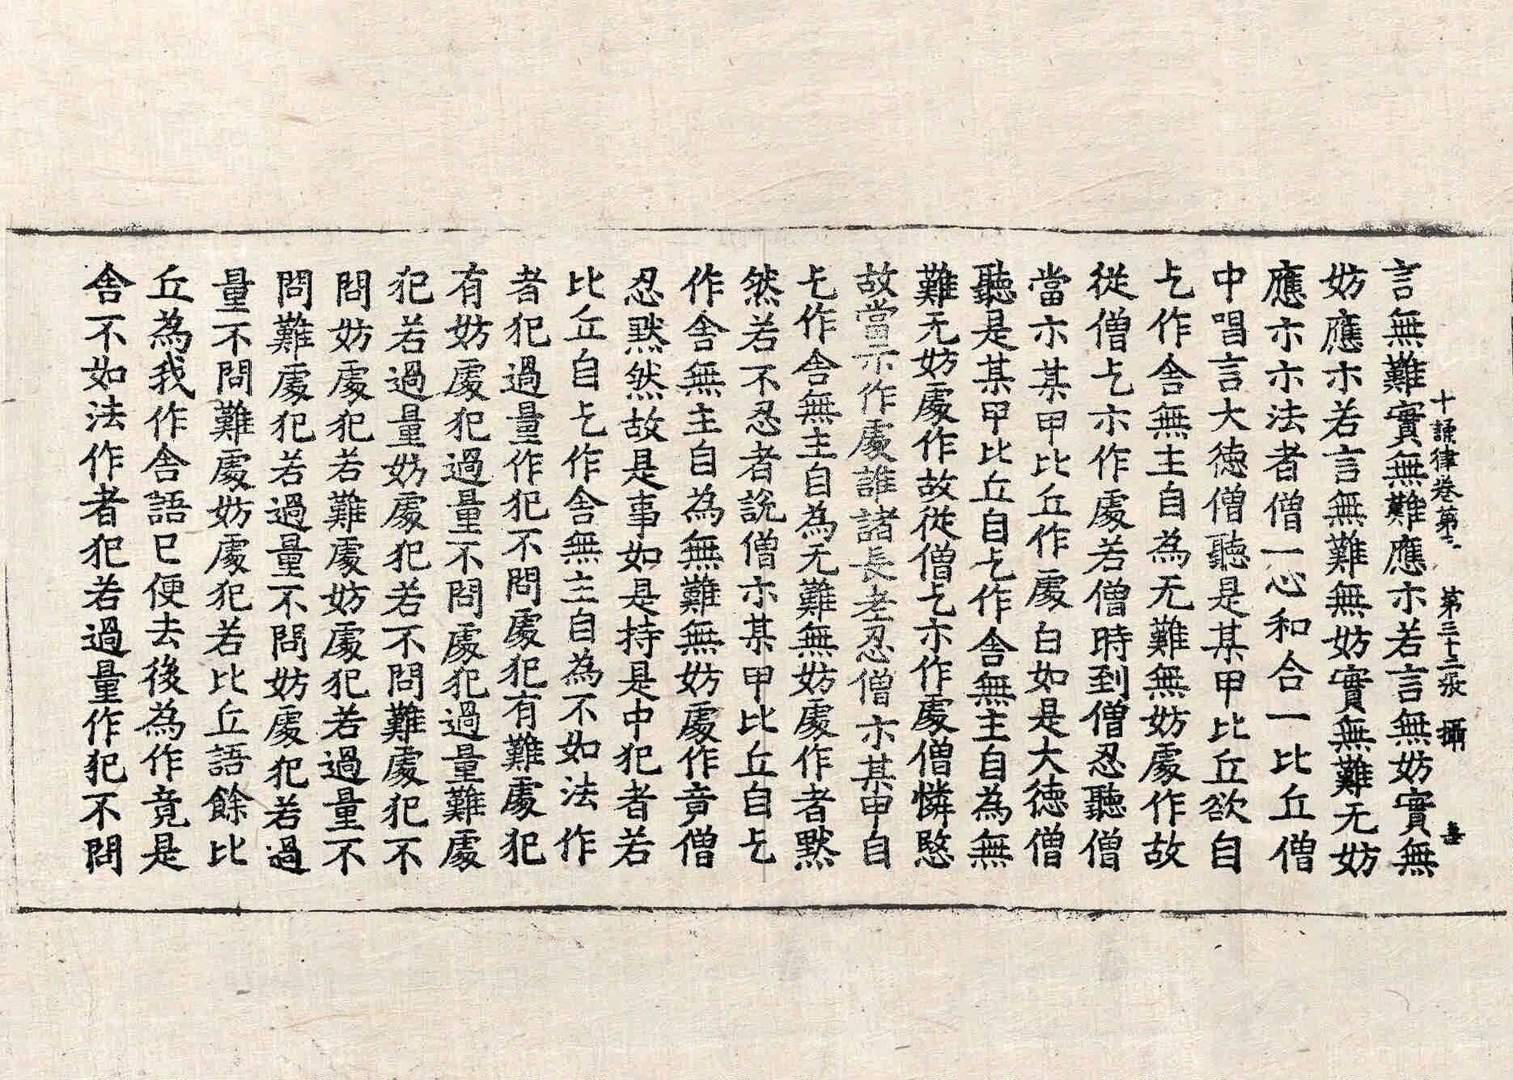 十誦律卷第三 第三十二张 攝
言無難實無難應示若言無妨實無
妨應示若言無難無妨實無難无妨
應示示法者僧一心和合一比丘僧
中唱言大德僧聽是某甲比丘欲自
乞作舍無主自為无難無妨處作故
從僧乞示作處若僧時到僧忍聽僧
當示某甲比丘作處白如是大德僧
聽是某甲比丘自乞作舍無主自為無
難无妨處作故從僧乞示作處僧憐愍
故當示作處誰諸長老忍僧示某甲自
乞作舍無主自為无難無妨處作者黙
然若不忍者說僧示某甲比丘自乞
作舍無主自為無難無妨處作竟僧
忍黙然故是事如是持是中犯者若
比丘自乞作舍無主自為不如法作
者犯過量作犯不問處犯有難處犯
有妨處犯過量不問處犯過量難處
犯若過量妨處犯若不問難處犯不
問妨處犯若難處妨處犯若過量不
問難處犯若過量不問妨處犯若過
量不問難處妨處犯若比丘語餘比
丘為我作舍語已便去後為作竟是
舍不如法作者犯若過量作犯不問